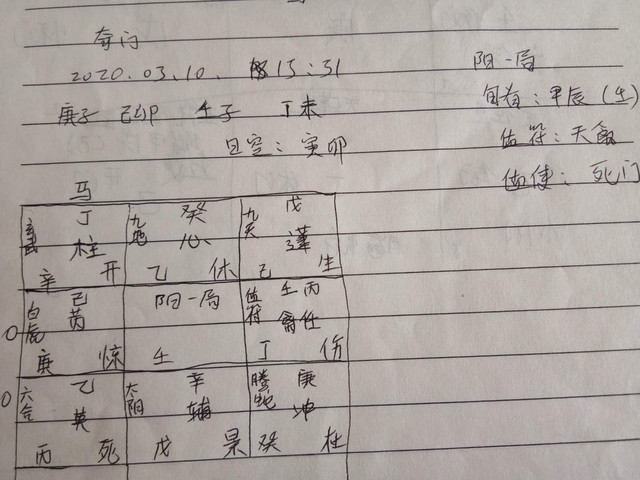 奇门
2020.03.10. 15:31
阳一局
庚子 己卯 壬子 丁未
旬首:甲辰(壬)
旬空:寅卯
值符:天禽
值使:死门
马
玄武 丁 九地 癸 九天 戊
柱 心 蓬
辛 开 乙 休 己 生
白虎 己 阳一局 值符 壬 丙
0 芮 禽 任
庚 惊 壬 丁 伤
0 六合 乙 太阴 辛 腾蛇 庚
英 辅 冲
丙 死 戊 景 癸 杜